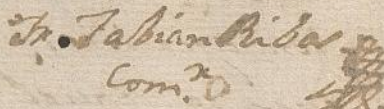 Fr. Fabian Ribas
Com.ᵒ